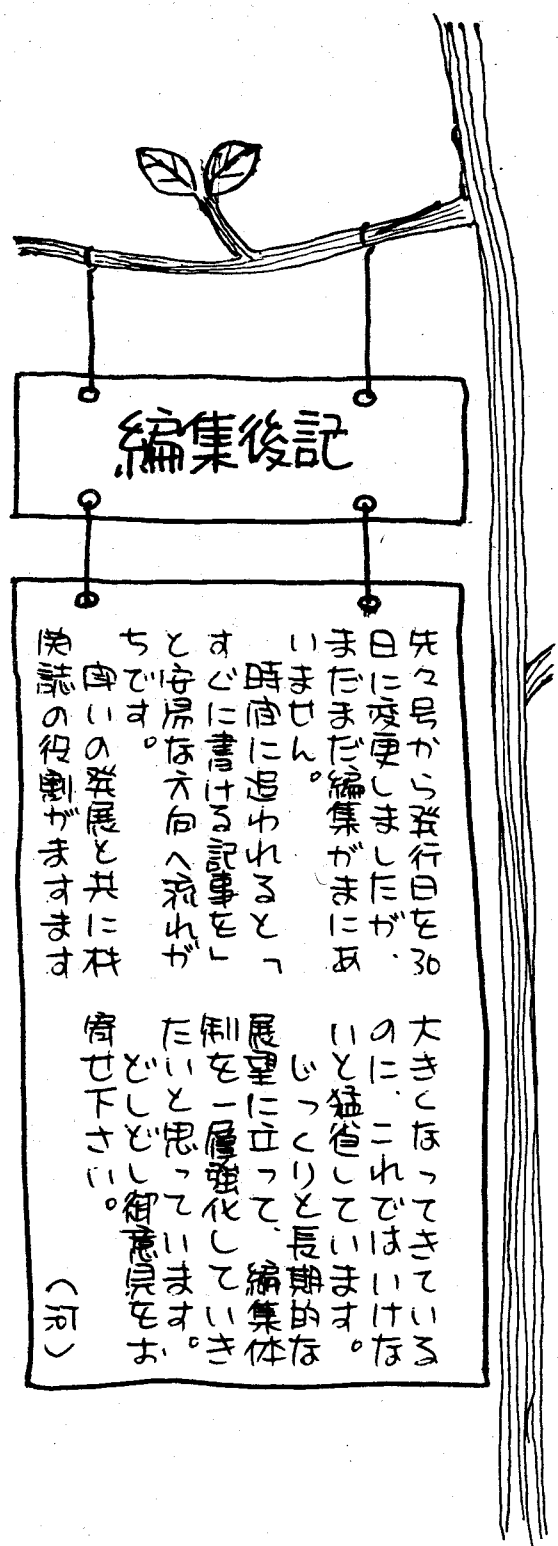 編集後記
先々号から発行日を30
日に変更しましたが、
まだまだ編集がまにあ
いません。
時間に追われると「
すぐに書ける記事を」
と安易な方向へ流れが
ちです。
闘いの発展と共に機
関誌の役割がますます
大きくなってきている
のに、これではいけな
いと猛省しています。
じっくりと長期的な
展望に立って、編集体
制を一層強化していき
たいと思っています。
どしどし御意見をお
寄せ下さい。